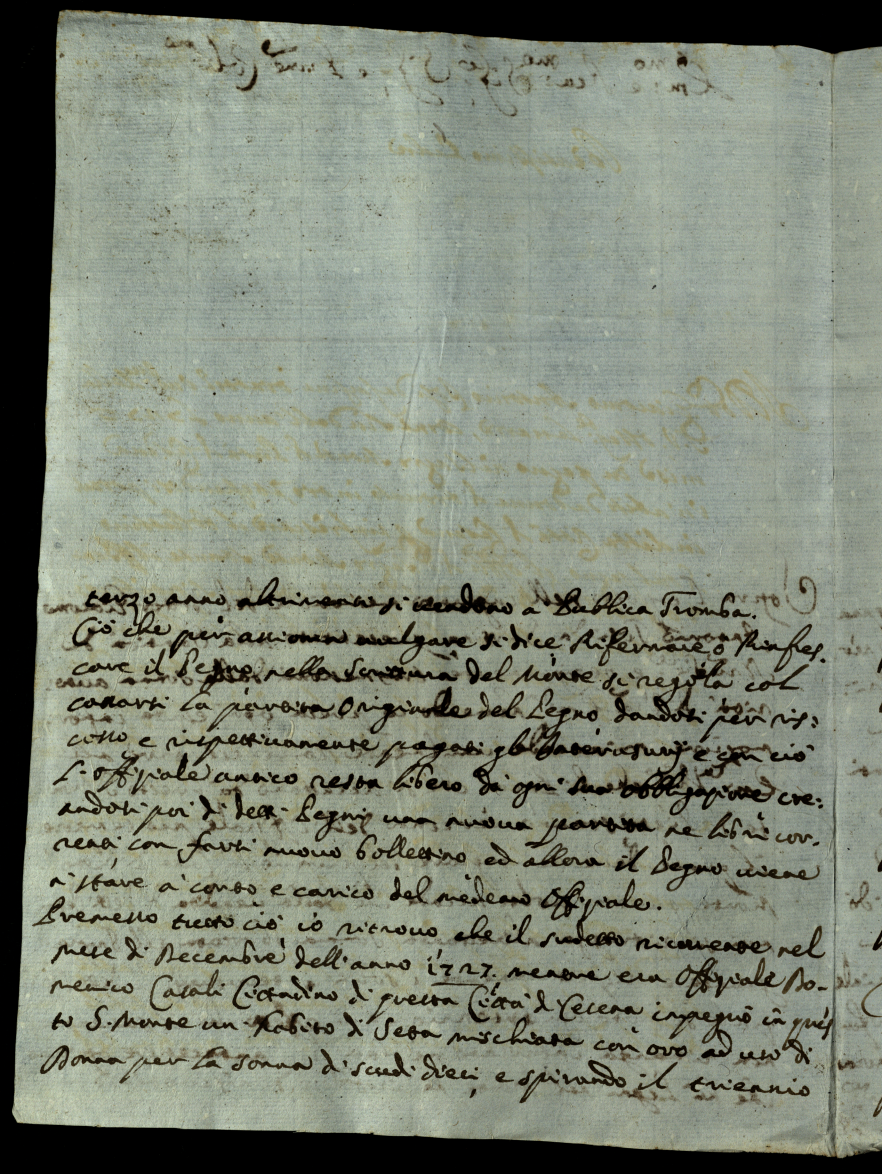 terzo anno altrimenti si vendono a Publica Tromba.
Ciò che per assioma vulgare si dice Rifermare o Rinfres,
care il Pegno nella Scrittura del Monte si regola col
cassarsi la partita Originale del Pegno dandosi per ris:
cosso e rispettivamente pagati gl'Interusurij e con ciò
l'offiziale antico resta libero da ogni sua obbligazione cre:
andosi poi di detti Pegni una nuova partita ne libri cor,
renti con farsi nuovo bollettino ed allora il Pegno viene
a stare a conto e carico del medemo Offiziale.
Premesso tutto ciò io ritrovo che il sudetto ricorrente nel
mese di Decembre dell'anno 1727. mentre era Offiziale Do-
menico Casali Cittadino di questa Città di Cesena impegnò in ques
to S. Monte un habito di Setta mischiata con oro ad uso di
Donna per la somma di scudi dieci, e spirando il triennio